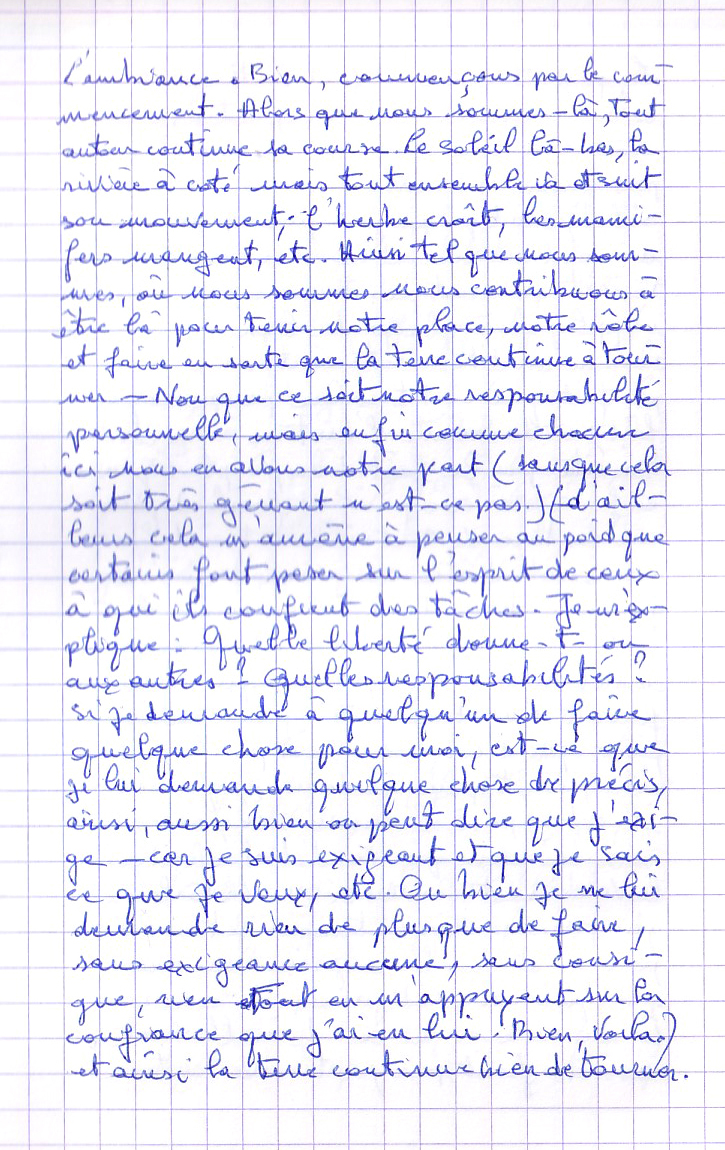 L'ambiance. Bien, commençons par le com-
mencement. Alors que nous sommes-là, tout
autour continue sa course. Le soleil là-bas, la
rivière à coté mais tout ensemble va et suit
son mouvement; l'herbe croît, les mami-
fers mangent, etc. Ainsi tel que nous som-
mes, où nous sommes nous contribuons à
être là pour tenir notre place, notre rôle
et faire en sorte que la terre continue à tour
ner – Non que ce soit notre responsabilité
personnelle, mais enfin comme chacun
ici nous en avons notre part (sans que cela
soit très gênant n'est-ce pas.) (d'ail-
leurs cela m'amène à penser au poid que
certains font peser sur l'esprit de ceux
à qui ils confient des tâches. Je m'ex-
plique : Quelle liberté donne-t-on
aux autres ? Quelles responsabilités ?
Si je demande à quelqu'un de faire
quelque chose pour moi, est-ce que
je lui demande quelque chose de précis,
ainsi, aussi bien on peut dire que j'exi-
ge – car je suis exigeant et que je sais
ce que je veux, etc. Ou bien je ne lui
demande rien de plus que de faire,
sans exigeance aucune, sans consi-
gne, rien en m'appuyent sur la
confiance que j'ai en lui. Bien, voila)
et ainsi la terre continue bien de tourner.